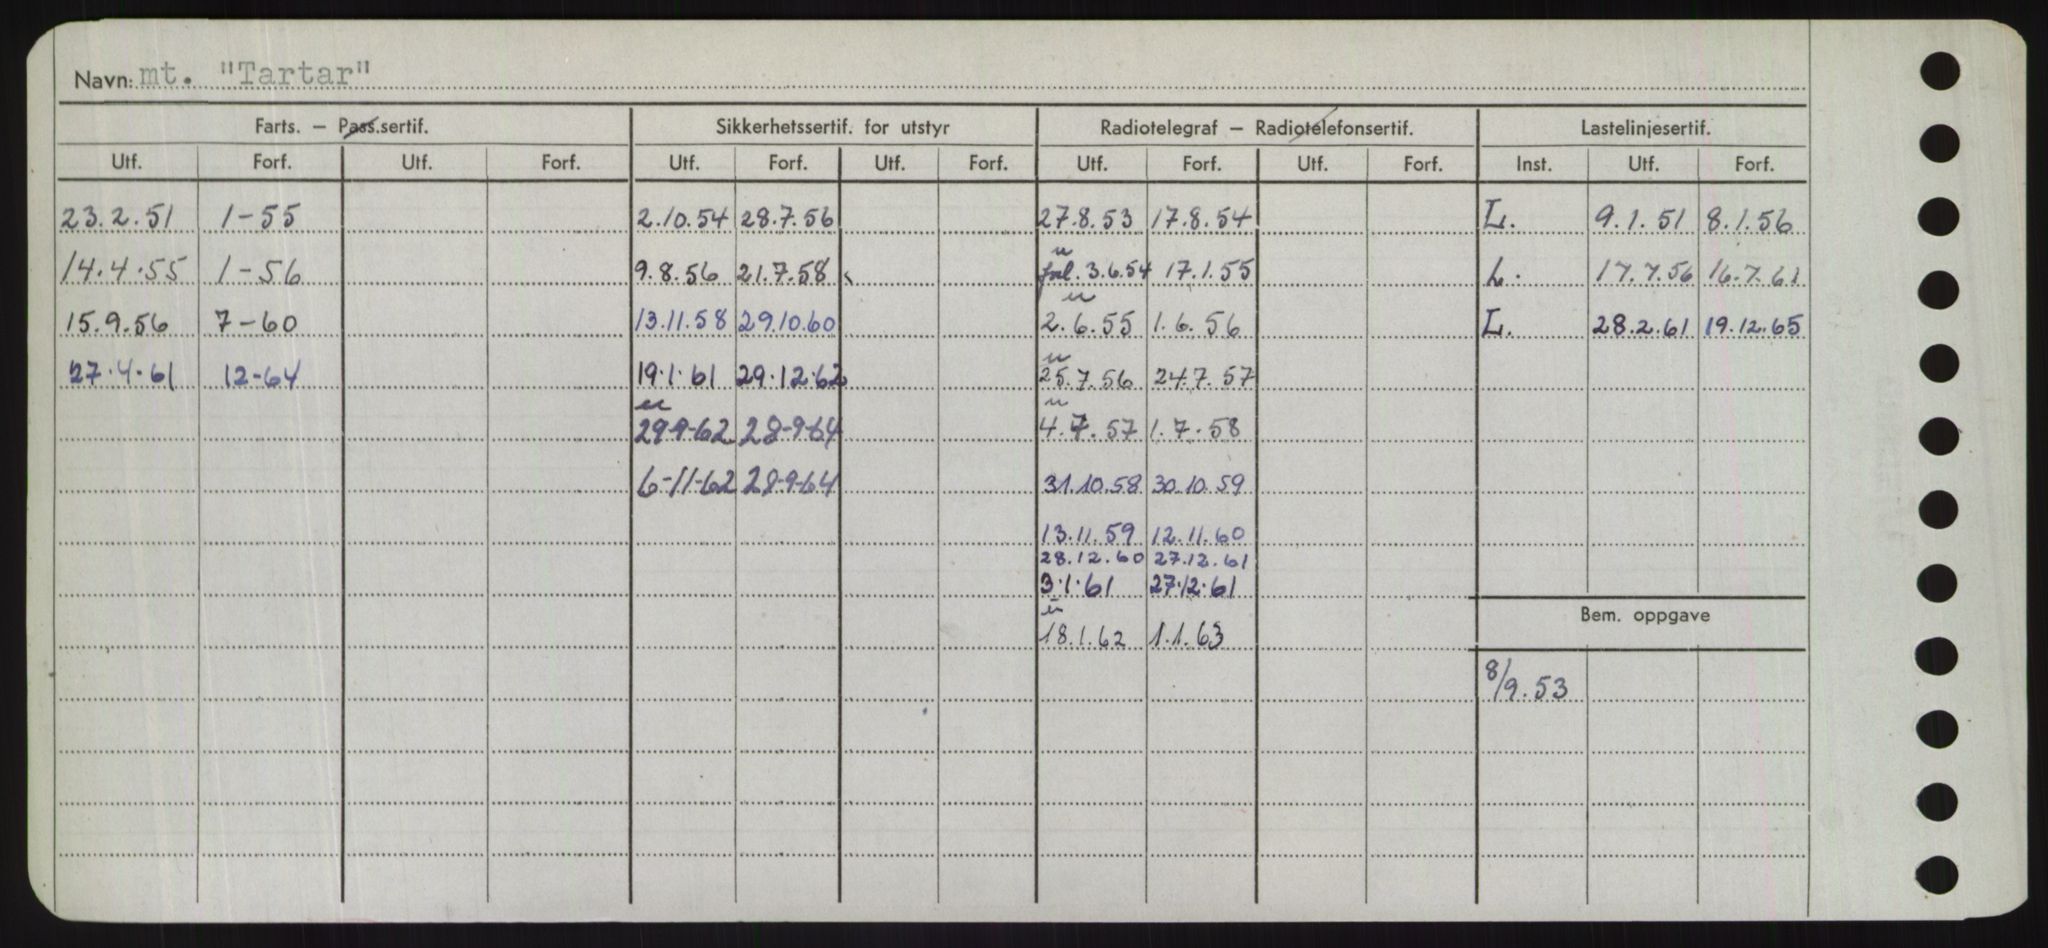 Navn: mt. "Tartar"
Farts. — Pass.sertif. Sikkerhetssertif. for utstyr Radiotelegraf — Radiotelefonsertif. Lastelinjesertif.
Utf. Forf. Utf. Forf. Utf. Forf. Utf. Forf. Utf. Forf. Utf. Forf. Inst. Utf. Forf.
23.2.51 1-55 2.10.54 28.7.56 27.8.53 17.8.54 L. 9.1.51 8.1.56
u
14.4.55 1-56 9.8.56 21.7.58 forl. 3.6.54 17.1.55 L. 17.7.56 16.7.61
u
15.9.56 7-60 13.11.58 29.10.60 2.6.55 1.6.56 L. 28.2.61 19.12.65
u
27.4.61 12-64 19.1.61 29.12.62 25.7.56 24.7.57
u u
29-9-62 28-9-64 4.7.57 1.7.58
6-11-62 28-9-64 31.10.58 30.10.59
13.11.59 12.11.60
28.12.60 27.12.61
3.1.61 27.12.61
u
18.1.62 1.1.63
Bem. oppgave
8/9.53